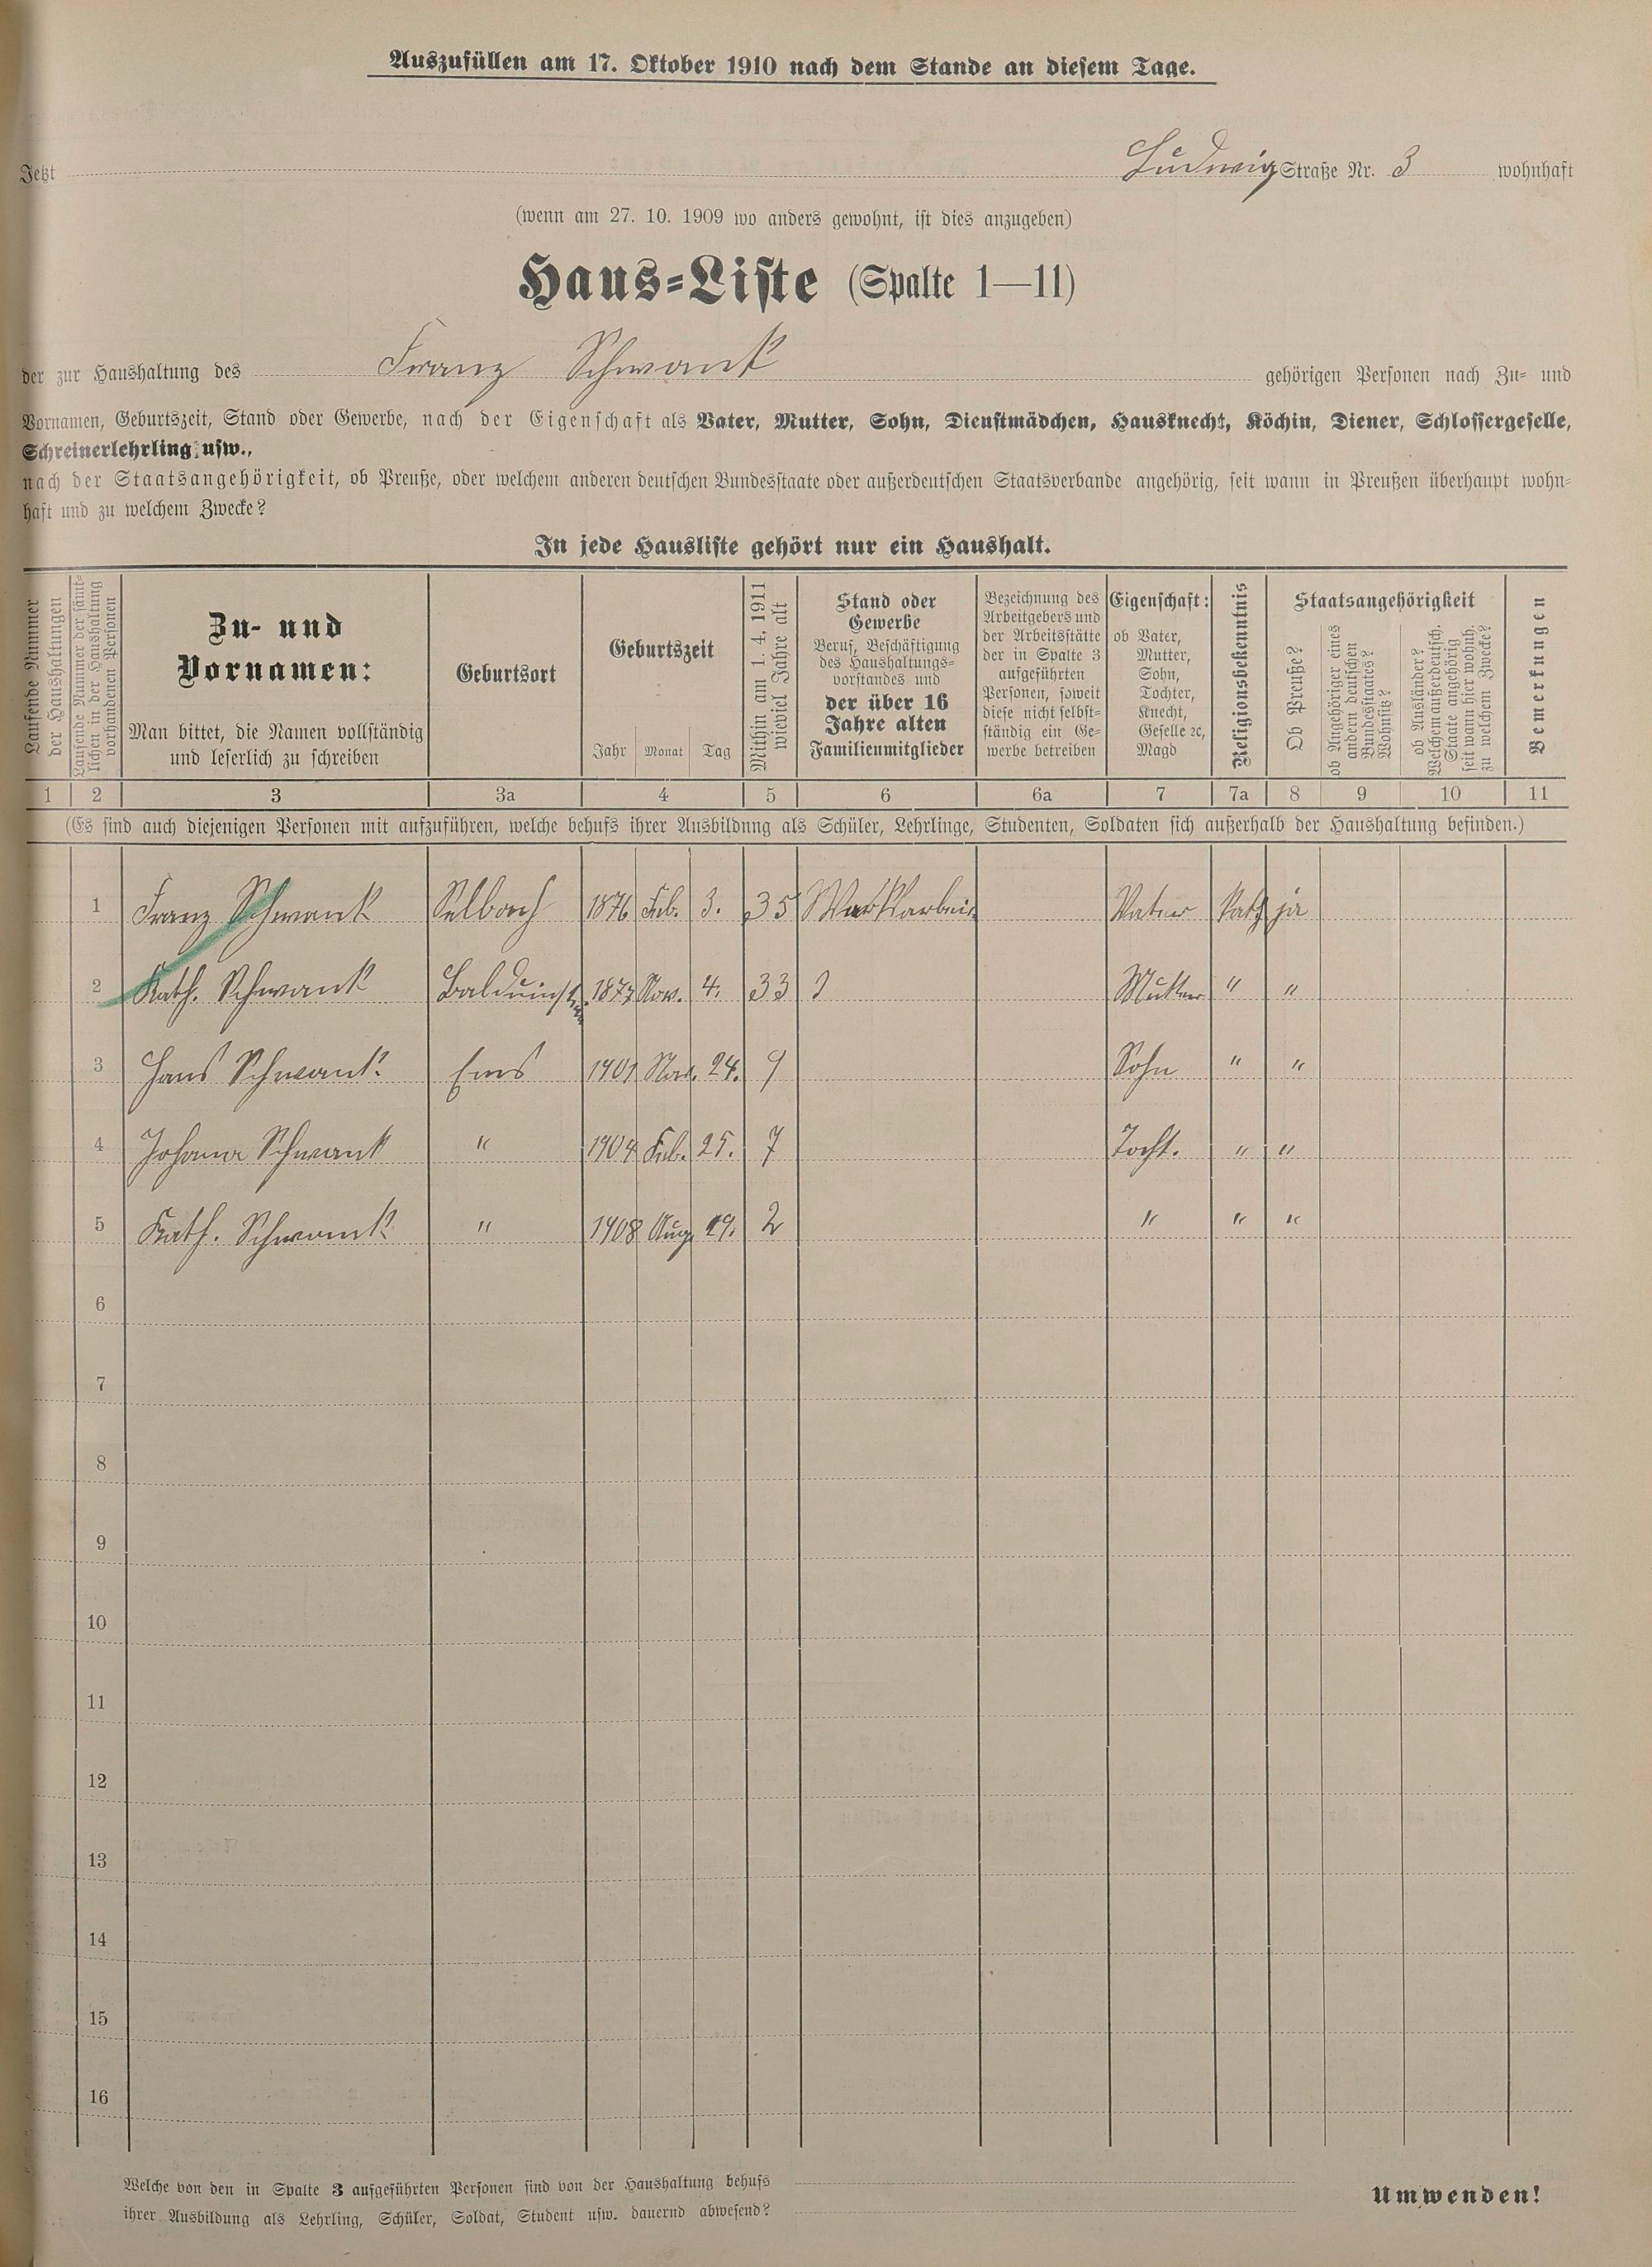 Auszufüllen am 17. Oktober 1910 nach dem Stande an diesem Tage.
Jetzt Ludwig Straße Nr. 3 wohnhaft
(wenn am 27. 10. 1909 wo anders gewohnt, ist dies anzugeben)
Haus-Liste (Spalte 1—11)
der zur Haushaltung des Franz Schwank gehörigen Personen nach Zu- und
Vornamen, Geburtszeit, Stand oder Gewerbe, nach der Eigenschaft als Vater, Mutter, Sohn, Dienstmädchen, Hausknecht, Köchin, Diener, Schlossergeselle,
Schreinerlehrling usw.,
nach der Staatsangehörigkeit, ob Preuße, oder welchem anderen deutschen Bundesstaate oder außerdeutschen Staatsverbande angehörig, seit wann in Preußen überhaupt wohn-
haft und zu welchem Zwecke?
In jede Hausliste gehört nur ein Haushalt.
Laufende Nummer
der Haushaltungen
Laufende Nummer der sämt-
lichen in der Haushaltung
vorhandenen Personen
Zu- und
Vornamen:
Man bittet, die Namen vollständig
und leserlich zu schreiben
Geburtsort
Geburtszeit
Jahr Monat Tag
Mithin am 1. 4. 1911
wieviel Jahre alt
Stand oder
Gewerbe
Beruf, Beschäftigung
des Haushaltungs-
vorstandes und
der über 16
Jahre alten
Familienmitglieder
Bezeichnung des
Arbeitgebers und
der Arbeitsstätte
der in Spalte 3
aufgeführten
Personen, soweit
diese nicht selbst-
ständig ein Ge-
werbe betreiben
Eigenschaft:
ob Vater,
Mutter,
Sohn,
Tochter,
Knecht,
Geselle ꝛc,
Magd
Religionsbekenntnis
Staatsangehörigkeit
Ob Preuße?
ob Angehöriger eines
andern deutschen
Bundesstaates?
Wohnsitz?
ob Ausländer?
Welchem außerdeutsch.
Staate angehörig
seit wann hier wohnh.
zu welchem Zwecke?
Bemerkungen
1 2 3 3a 4 5 6 6a 7 7a 8 9 10 11
(Es sind auch diejenigen Personen mit aufzuführen, welche behufs ihrer Ausbildung als Schüler, Lehrlinge, Studenten, Soldaten sich außerhalb der Haushaltung befinden.)
1 Franz Schwank Selbach 1876 Feb. 3. 35 Vater kath ja
2 Kath. Schwank 1877 Nov. 4. 33 Mutter " "
3 Hans Schwank Ems 1901 Nov. 24. 9 Sohn " "
4 Johana Schwank " 1904 Feb. 25. 7 Tocht. " "
5 Kath. Schwank " 1908 Aug. 19. 2 " " "
6
7
8
9
10
11
12
13
14
15
16
Welche von den in Spalte 3 aufgeführten Personen sind von der Haushaltung behufs
ihrer Ausbildung als Lehrling, Schüler, Soldat, Student usw. dauernd abwesend?
Umwenden!